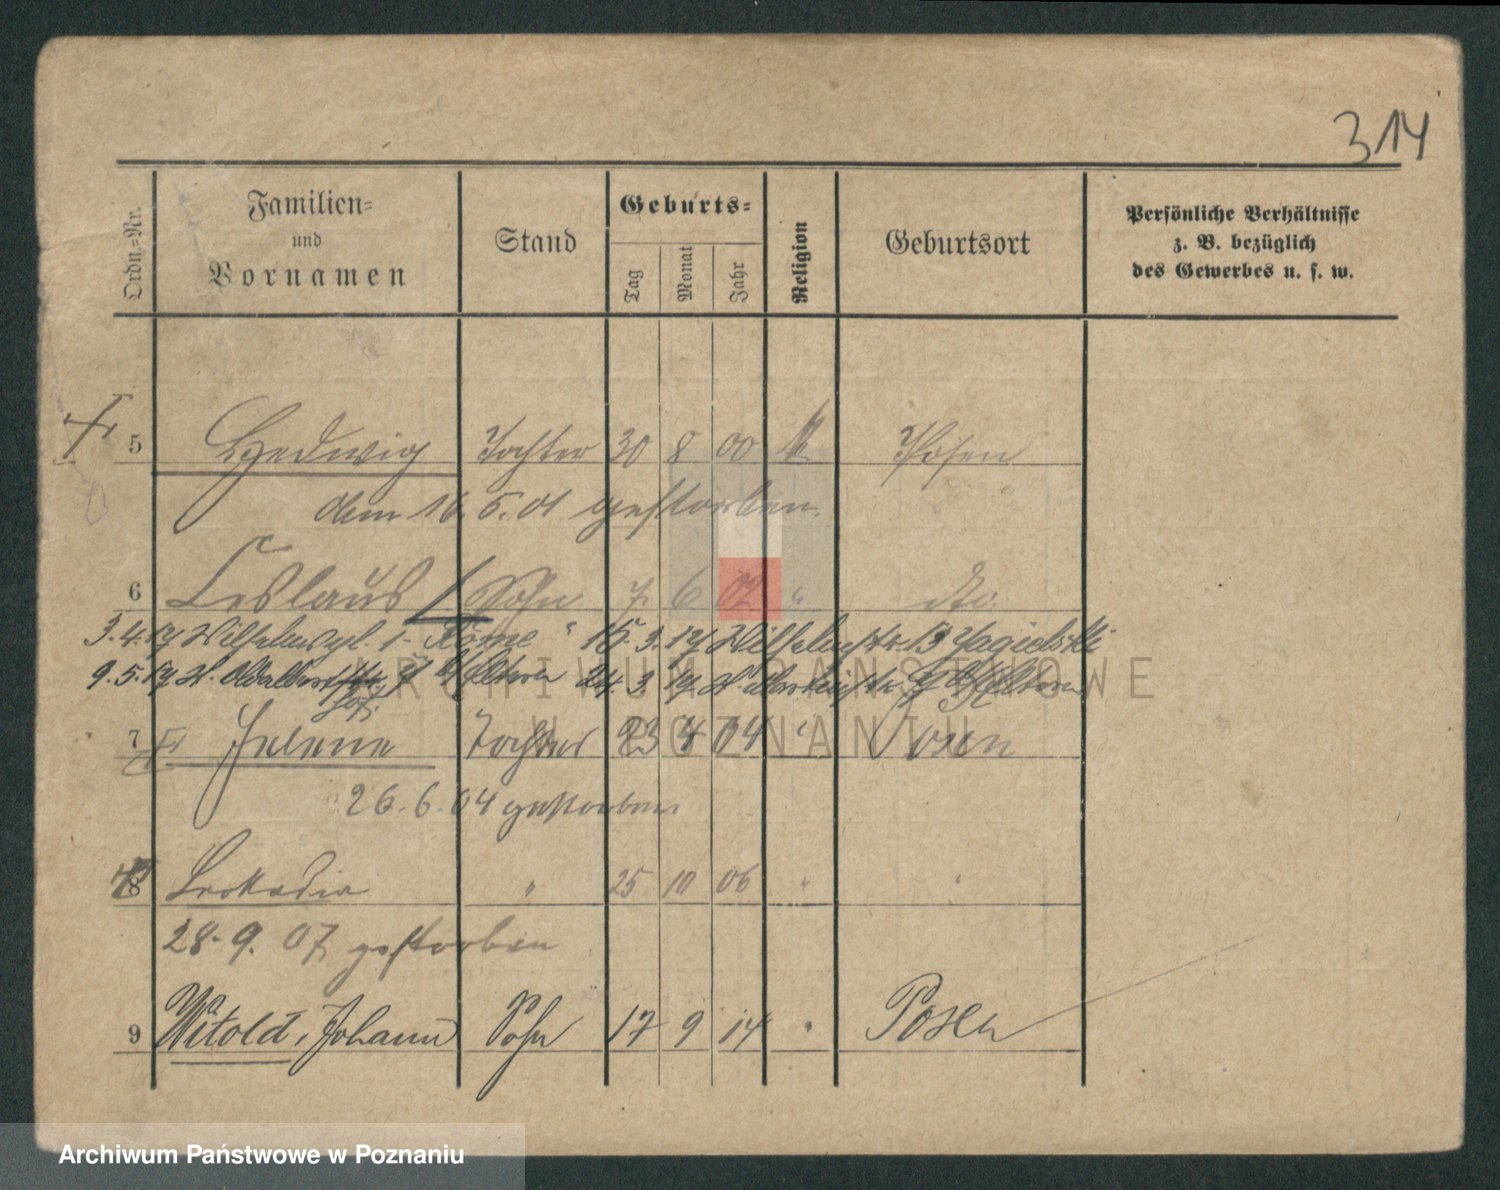 314
Ordn.-Nr.
Familien-
und
Vornamen
Stand
Geburts-
Tag
Monat
Jahr
Religion
Geburtsort
Persönliche Verhältnisse
z. B. bezüglich
des Gewerbes u. s. w.
5 Hedwig Tochter 30 8 00 k Posen
dem 16. 5. 01 gestorben.
6 Ceslaus Sohn 7 6 02 " dto.
3.4.19 1- " 15.3.19 13
9.5.19 Eltern 24.3.19 Eltern
ARCHIWUM PAŃSTWOWE
W POZNANIU
7 Helene Tochter 23 4 04 " Posen
26.6.04 gestorben
8 Leokadia " 25 10 06 " "
28. 9. 07 gestorben
9 Witold, Johann Sohn 17 9 14 " Posen
Archiwum Państwowe w Poznaniu